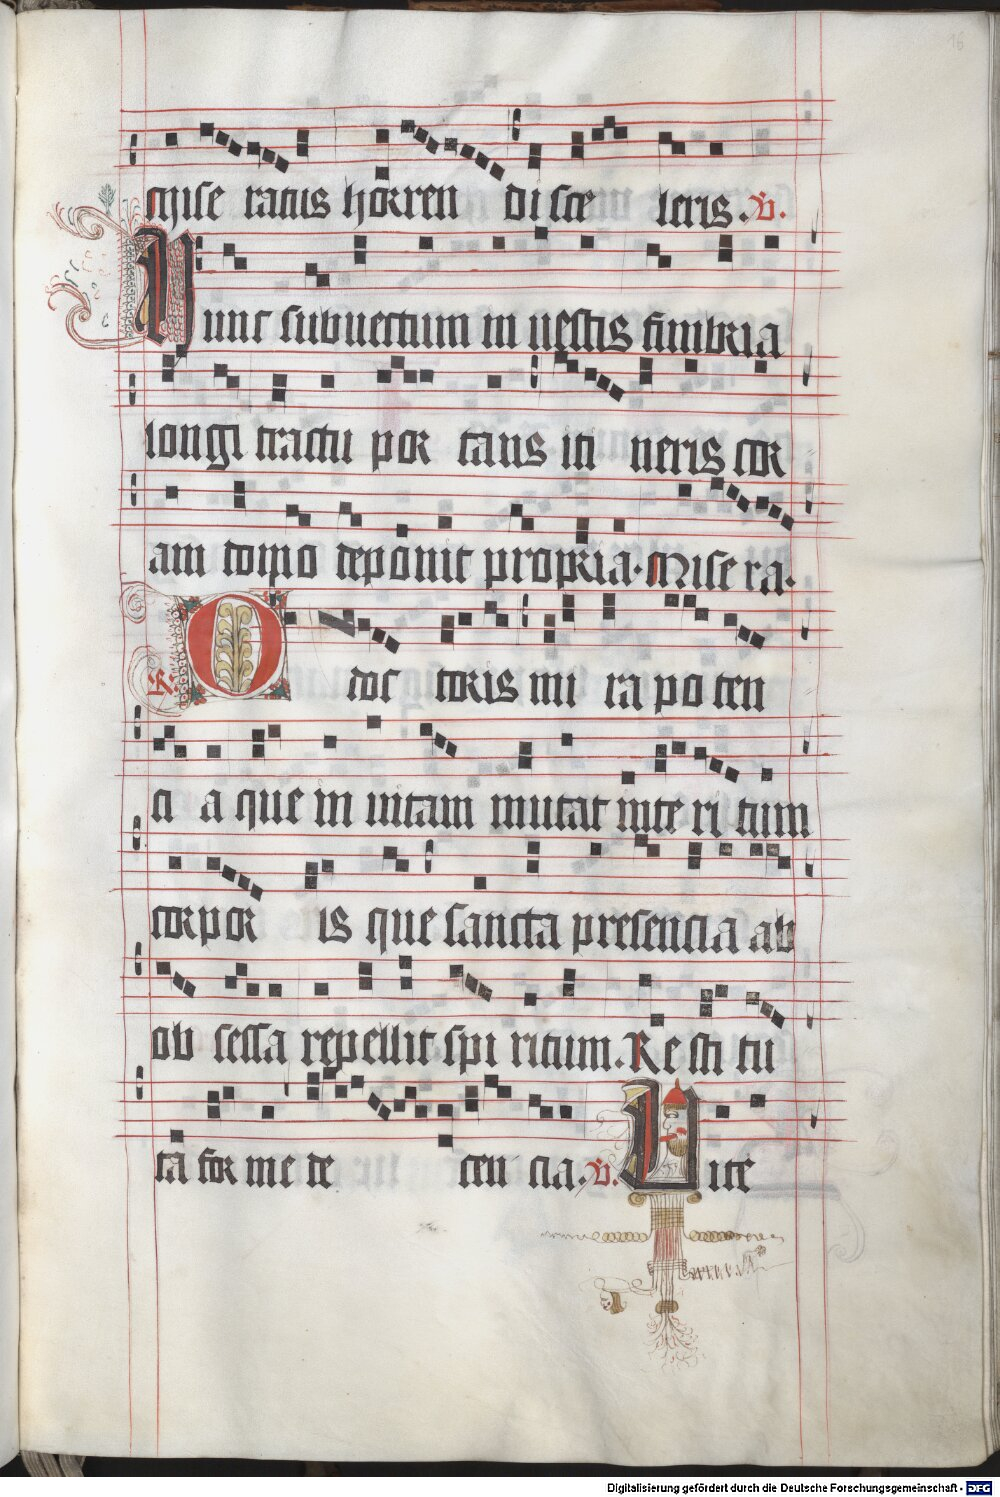 16
mise ratus horren di sce leris. V.
Nunc subuectum in uestis fimbria
longi tractu por tans iti neris cor
am domo deponit propria. Mise ra.
R. O doc toris mi ra po ten
ci a que in uitam mutat inte ri tum
corpor is que sancta presencia ab
ob sessa repellit spi ritum. Re sti tu
ta for me de cen cia. V. Uite
Digitalisierung gefördert durch die Deutsche Forschungsgemeinschaft - DFG